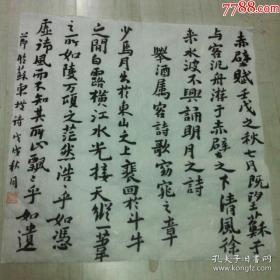 赤壁賦壬戌之秋七月既望蘇子
与客泛舟游于赤壁之下清風徐
来水波不興誦明月之詩
舉酒属客詩歌窈窕之章
少焉月出於東山之上裴回於斗牛
之間白露橫江水光接天縱一葦
之所如陵万頃之茫然浩々乎如憑
虚御風而不知其所止飄々乎如遺
蘇東坡詩戊戌秋月
7788.com